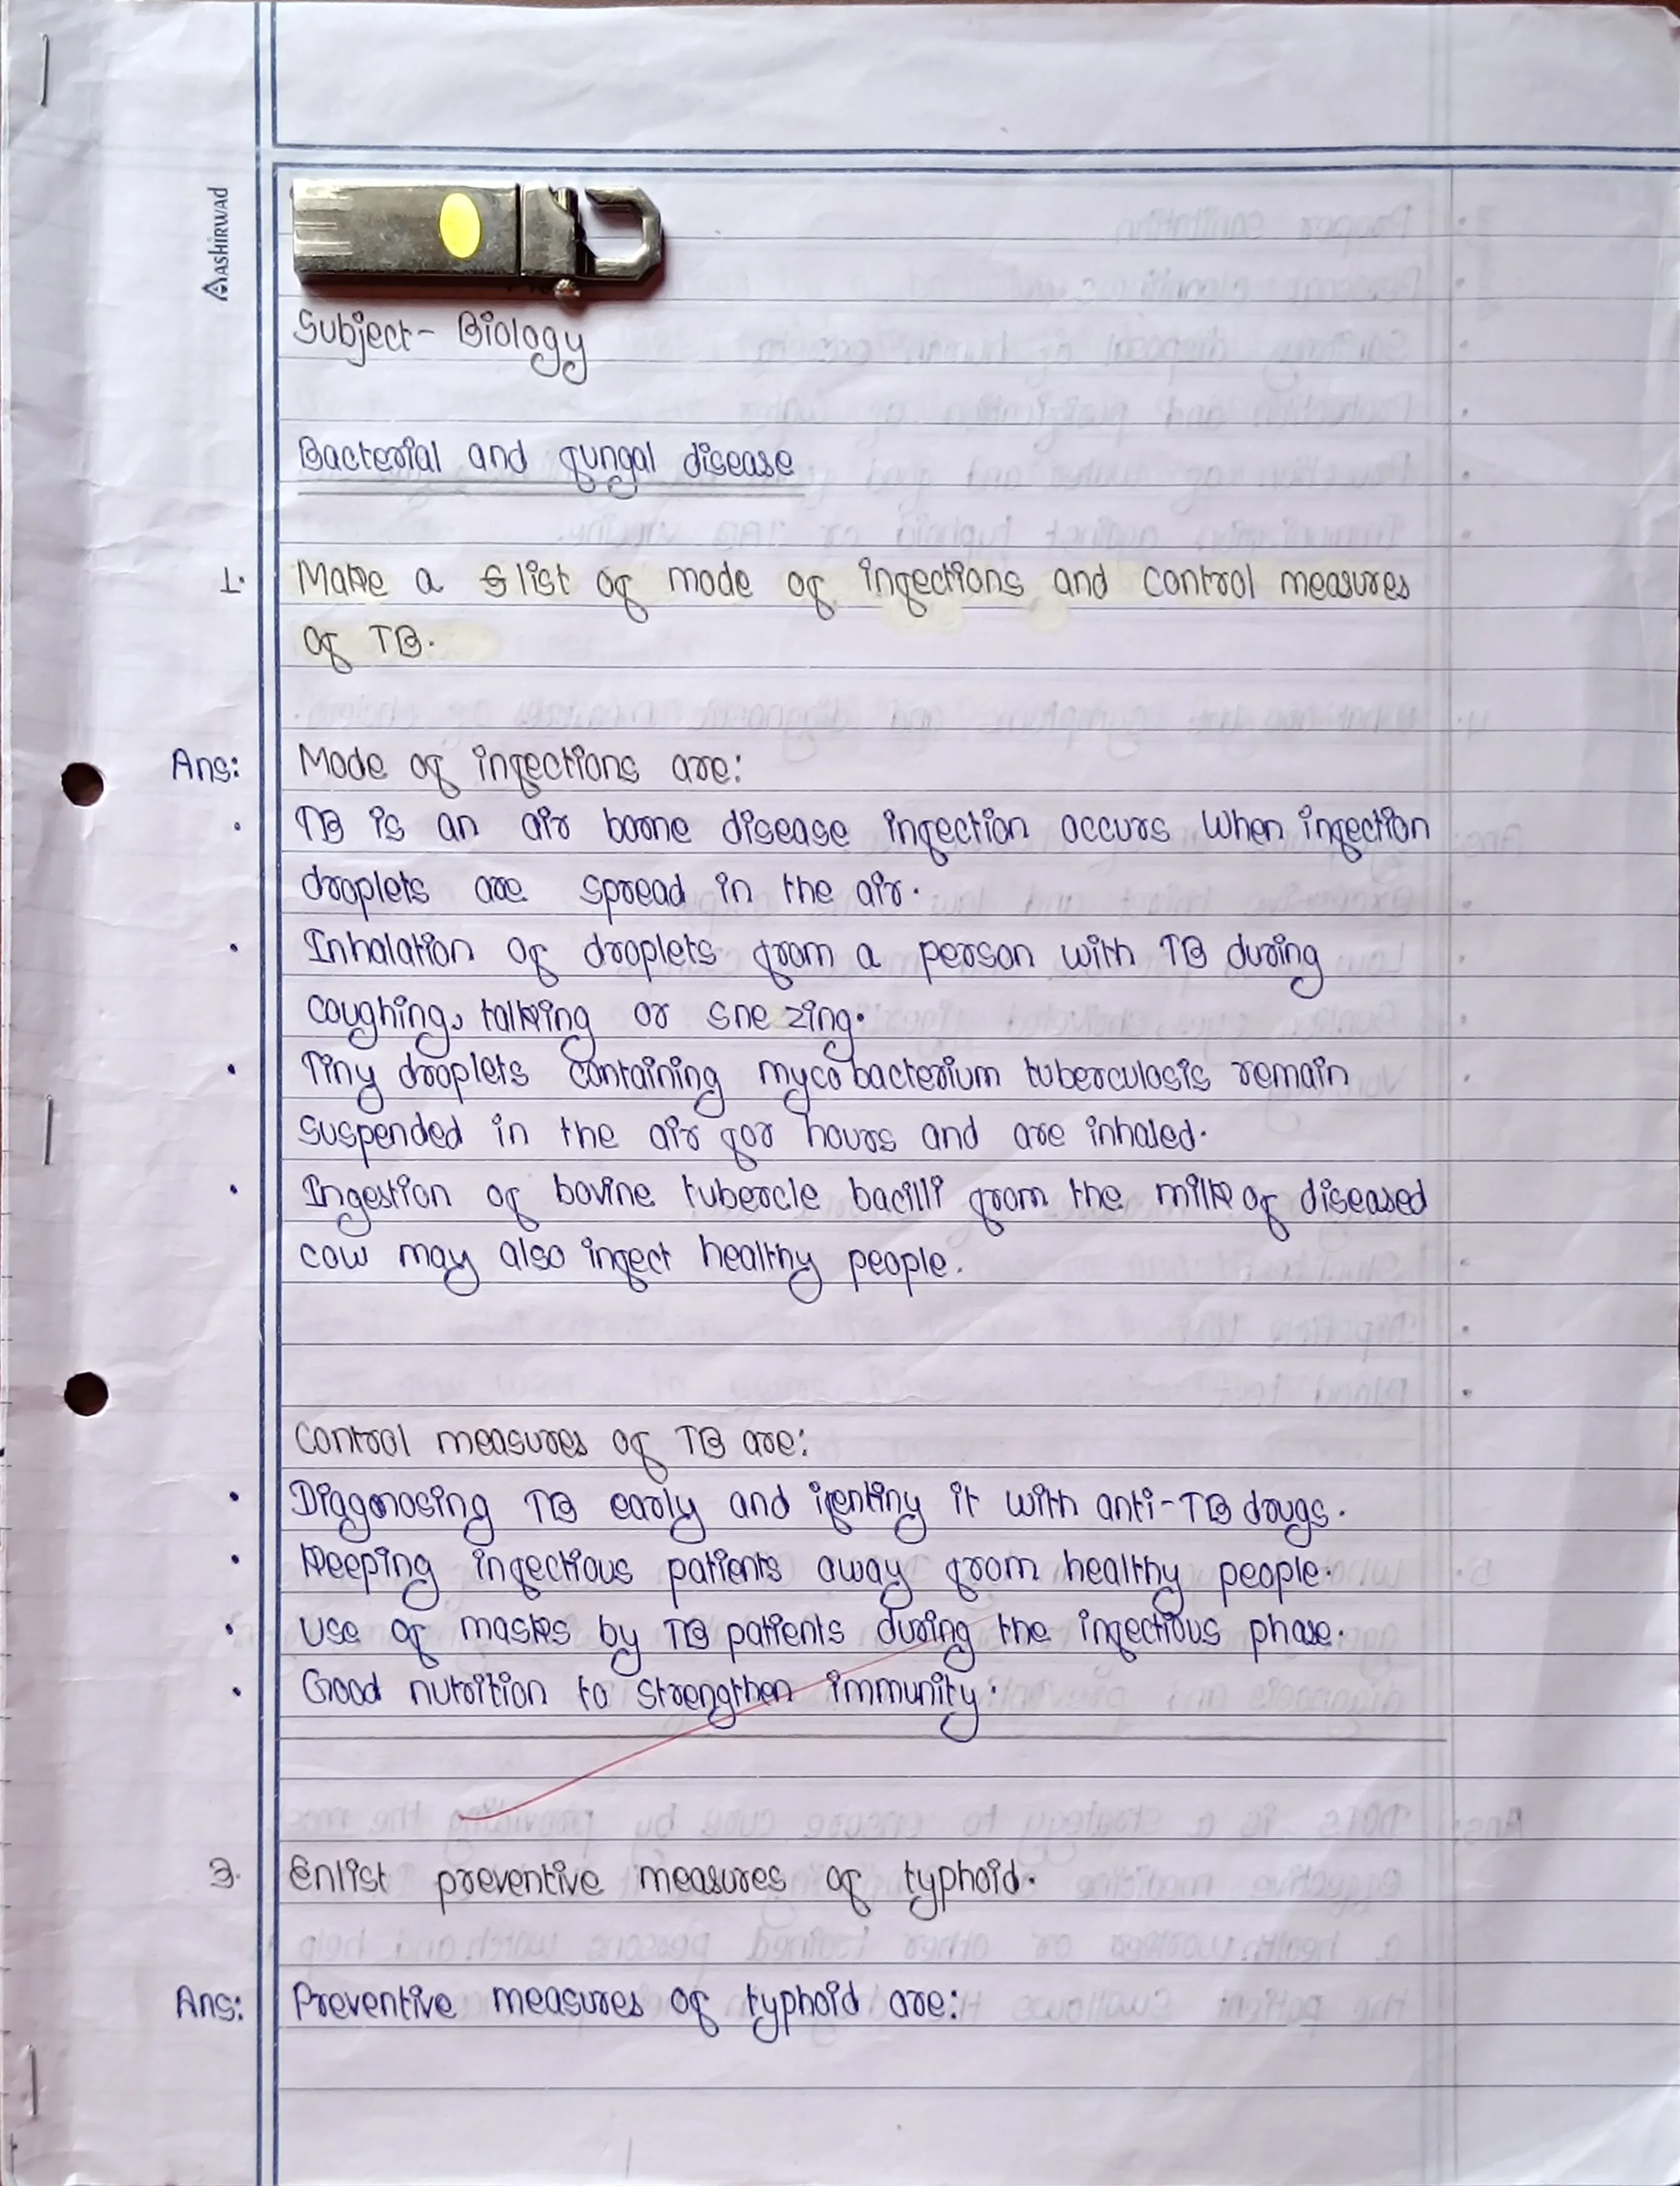 AASHIRWAD
Subject- Biology
Bacterial and fungal disease
1. Make a list of mode of infections and control measures
of TB.
Ans: Mode of infections are:
• TB is an air borne disease infection occurs when infection
droplets are spread in the air.
• Inhalation of droplets from a person with TB during
coughing, talking or snezing.
• Tiny droplets containing mycobacterium tuberculosis remain
suspended in the air for hours and are inhaled.
• Ingestion of bovine tubercle bacilli from the milk of diseased
cow may also infect healthy people.
Control measures of TB are:
• Diagonosing TB early and it with anti-TB drugs.
• Keeping infectious patients away from healthy people.
• Use of masks by TB patients during the infectious phase.
• Good nutrition to strengthen immunity.
3. Enlist preventive measures of typhoid.
Ans: Preventive measures of typhoid are: